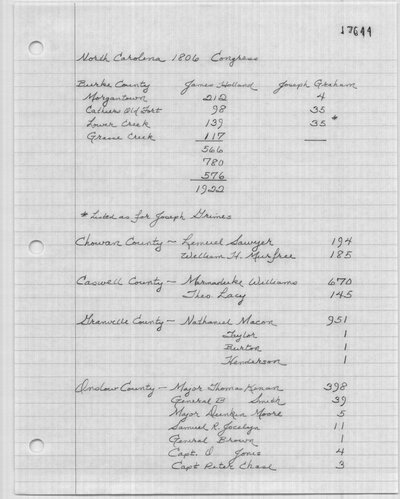 17644
North Carolina 1806 Congress
Burke County James Holland Joseph Graham
Morgantown 212 4
Cathers Old Fort 98 35
Lower Creek 139 35 *
Grasse Creek 117
566
780
576
1922
* Listed as for Joseph Grimes
Chowan County - Lemuel Sawyer 194
William H. Murfree 185
Caswell County - Marmaduke Williams 670
Theo Lacy 145
Granville County - Nathaniel Macon 951
Taylor 1
Burton 1
Henderson 1
Onslow County - Major Thomas Kenan 398
General B Smith 39
Major Dunkin Moore 5
Samuel R. Jocelyn 11
General Brown 1
Capt. O Jones 4
Capt Peter Chase 3